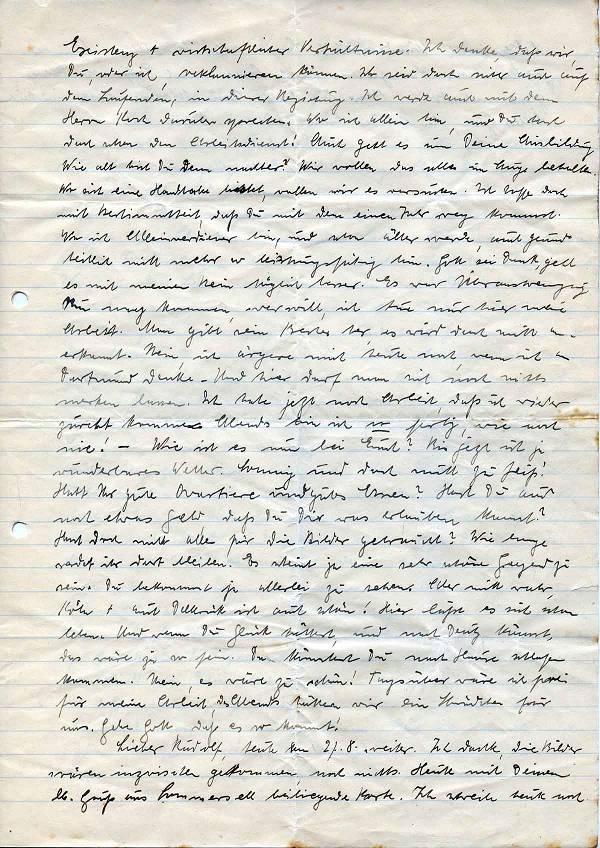 Existenz + wirtschaftlicher Verhältnisse. Ich denke, daß wir
Du, oder ich, reklamieren können. Ihr seid doch auch auf
dem Laufenden, in dieser Beziehung. Ich werde auch mit dem
Herrn Koch darüber sprechen. Wo ich allein bin, und Du hast
doch schon den Arbeitsdienst! Auch geht es um Deine Ausbildung
Wie alt bist Du denn nachher? Wir wollen das alles im Auge behalten.
Wo sich eine Handhabe bietet, wollen wir es versuchen. Ich hoffe doch
mit Bestimmtheit, daß Du mit dem einen Jahr weg kommst.
Wo ich Alleinverdiener bin, und schon älter werde, auch gesund-
heitlich nicht mehr so leistungsfähig bin. Gott sei Dank geht
es mit meinem Bein täglich besser. Es war Überanstrengung
Nun mag kommen, wer will, ich tue nur hier meine
Arbeit. Man gibt sein Bestes her, es wird doch nicht an-
erkannt. Nein, ich ärgere mich heute noch, wenn ich an
Dortmund denke. – Und hier darf man sich noch nichts
merken lassen. Ich habe jetzt noch Arbeit, daß ich wieder
zurecht komme. Abends bin ich so fertig, wie noch
nie! – Wie ist es nun bei Euch? Bis jetzt ist ja
wunderbares Wetter. Sonnig und doch nicht zu heiß!
Habt Ihr gute Quartiere und gutes Essen? Hast Du auch
noch etwas Geld daß Du Dir was erlauben kannst?
Hast doch nicht alle für die Bilder gebraucht? Wie lange
werdet ihr dort bleiben. Es scheint ja eine sehr schöne Gegend zu
sein. Du bekommst ja allerlei zu sehen. Aber nicht wahr,
Köln + auch Dellbrück ist auch schön! Hier läßt es sich schon
leben. Und wenn Du Glück hättest, und nach Deutz kämst,
das wäre ja so fein. Dann könntest Du nach Hause schlafen
kommen. Nein, es wäre zu schön! Tagsüber wäre ich
für meine Arbeit, des Abends hätten wir ein Stündchen für
uns. Gebe Gott daß es so kommt!
Lieber Rudolf, heute am 27.8. weiter. Ich dachte, die Bilder
wären inzwischen gekommen, noch nichts. Heute mit Deinem
lb. Gruß aus beiliegende Karte. Ich schreibe heute noch